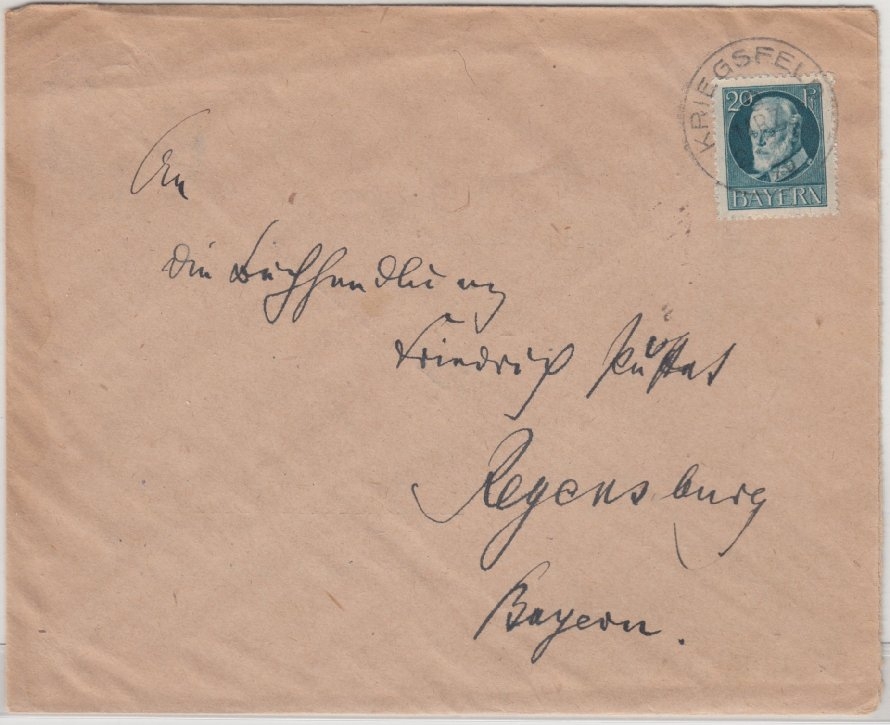 KRIEGSFELD
20 Pf
BAYERN
An
die Buchhandlung
Friedrich Pustet
Regensburg
Bayern.